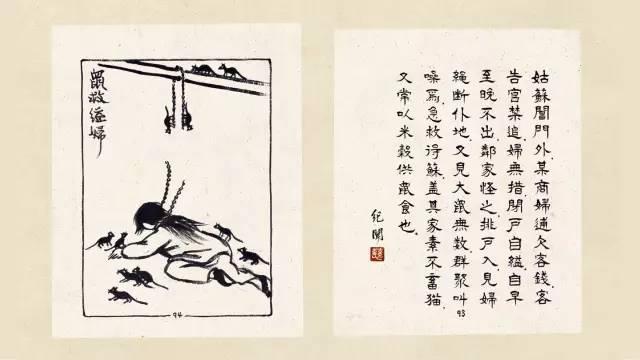 鼠救縊婦
94
姑蘇閶門外、某商婦逋欠客錢、客
告官禁追、婦無措、閉戶自縊、自早
至晚不出、鄰家怪之、排戶入、見婦
繩斷仆地、又見大鼠無數、群聚叫
噪、為急救得蘇、蓋其家素不畜猫、
又常以米穀供鼠食也、
紀聞
93